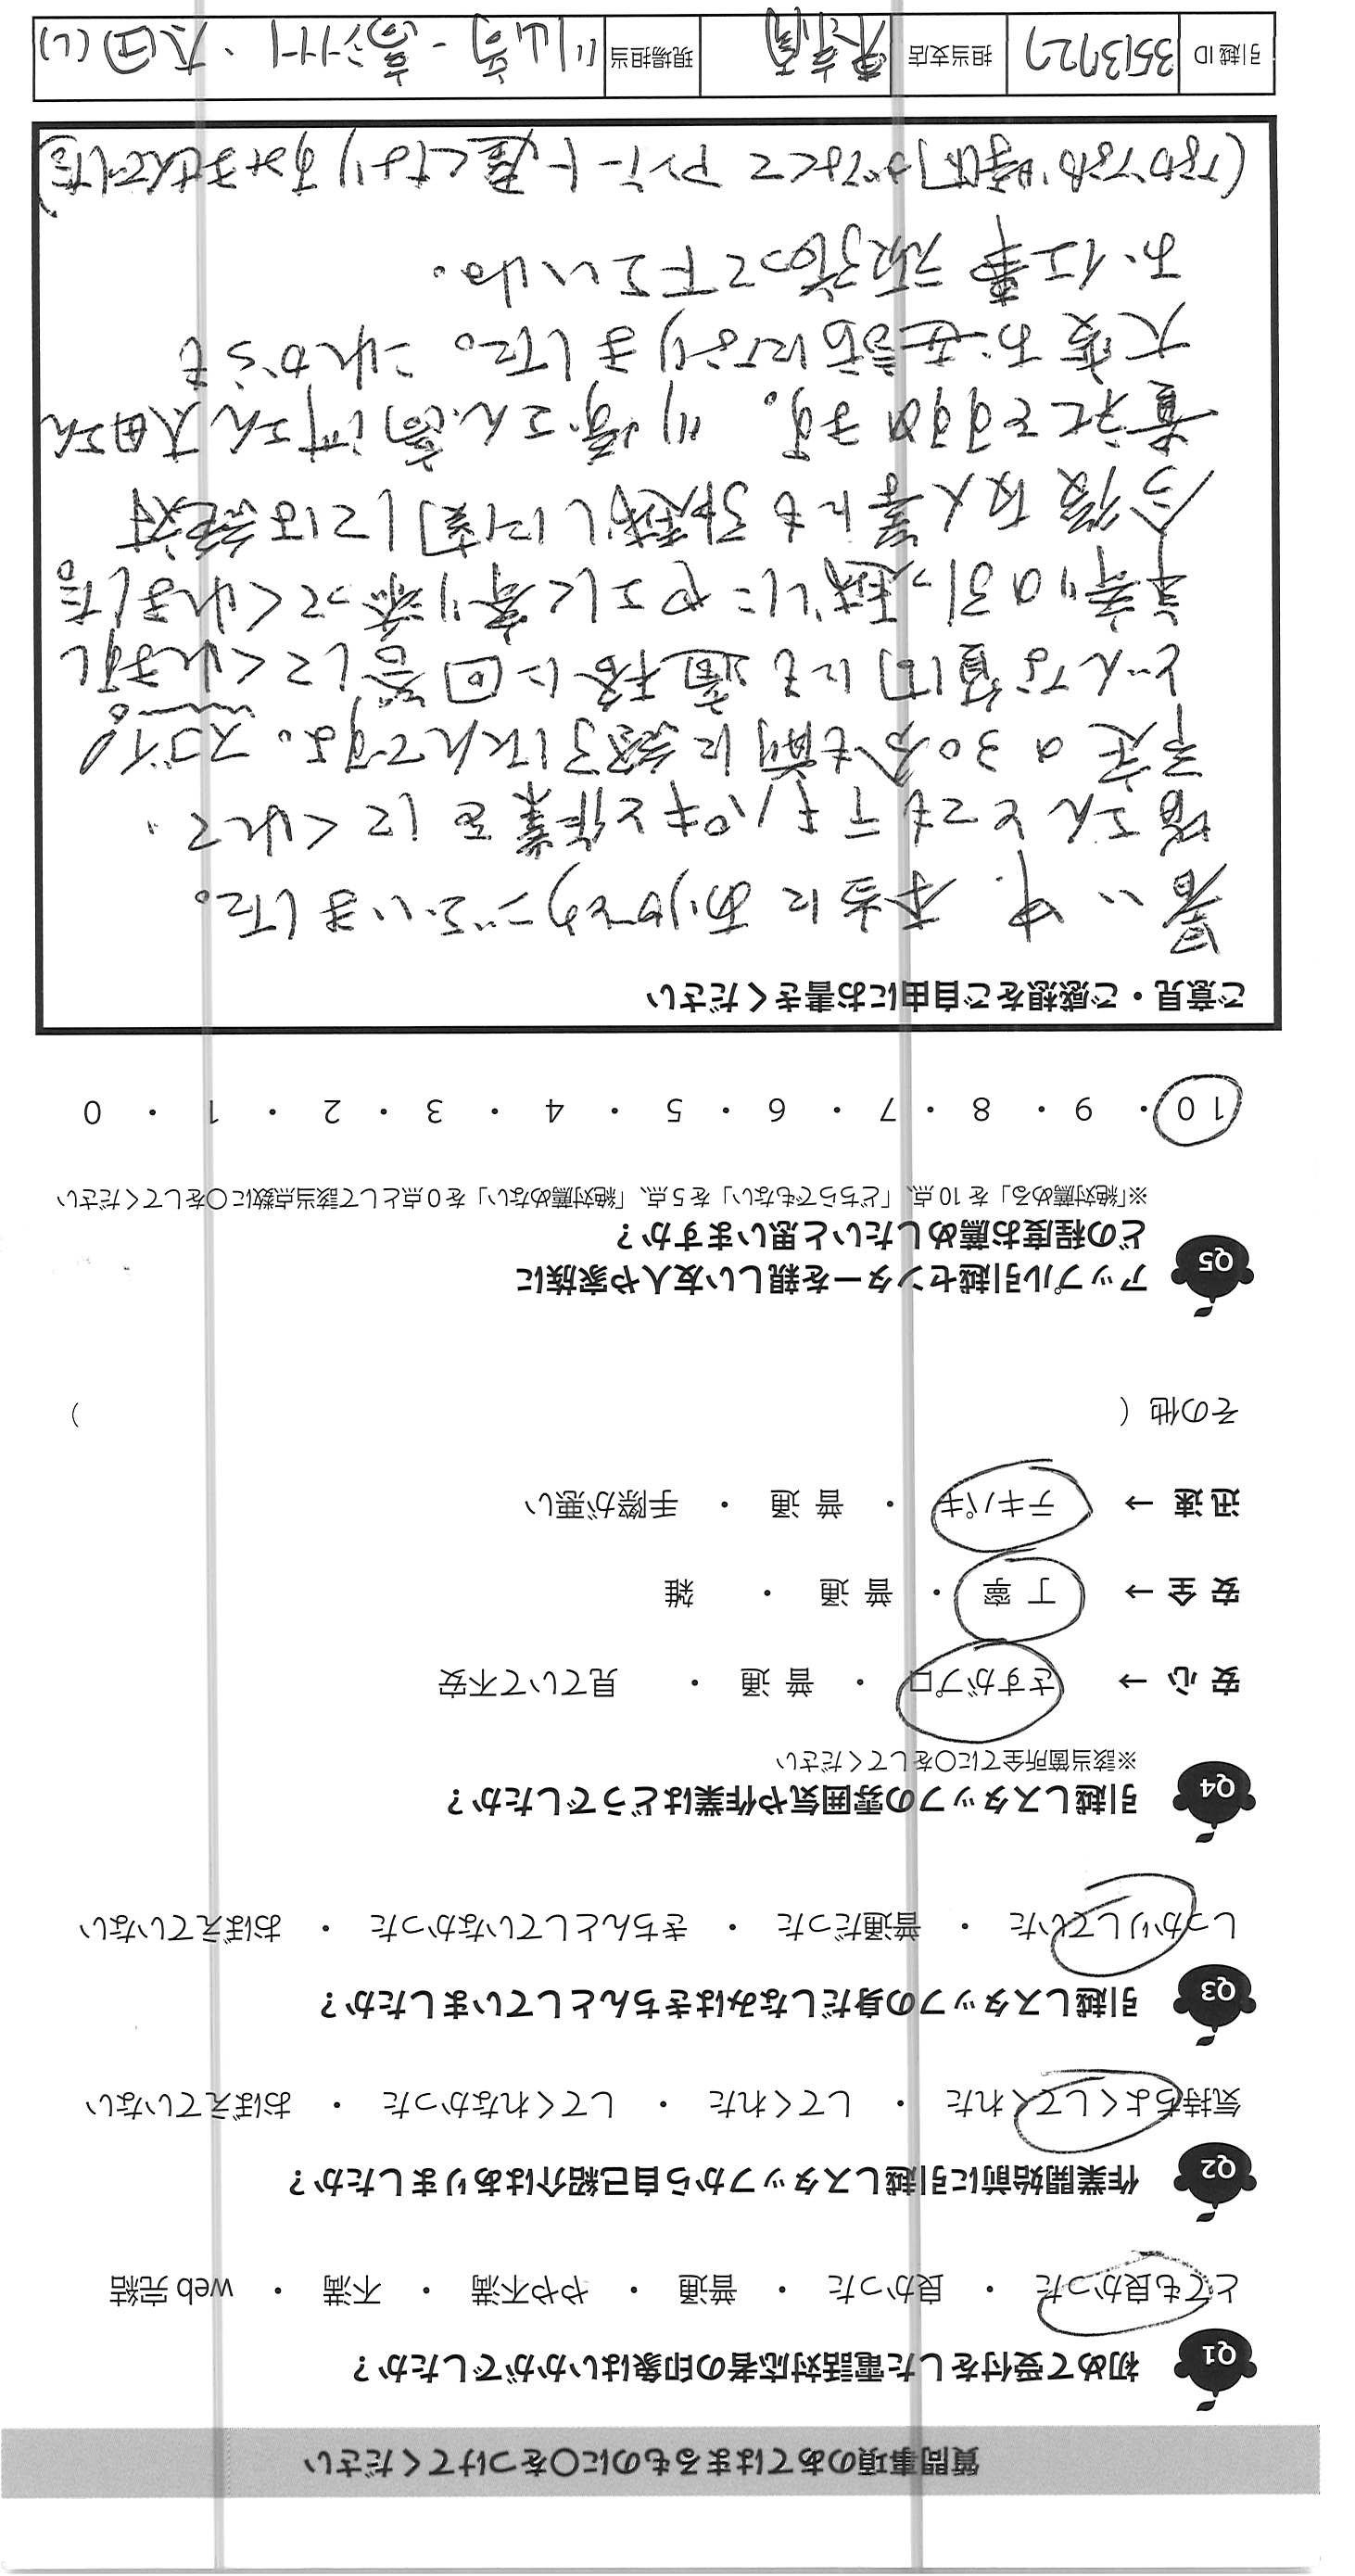 質問事項のあてはまるものに○をつけてください
Q1 初めて受付をした電話対応者の印象はいかがでしたか？
とても良かった ・ 良かった ・ 普通 ・ やや不満 ・ 不満 ・ web 完結
Q2 作業開始前に引越しスタッフから自己紹介はありましたか？
気持ちよくしてくれた ・ してくれた ・ してくれなかった ・ おぼえていない
Q3 引越しスタッフの身だしなみはきちんとしていましたか？
しっかりしていた ・ 普通だった ・ きちんとしていなかった ・ おぼえていない
Q4 引越しスタッフの雰囲気や作業はどうでしたか？
※該当箇所全てに○をしてください
安心 → さすがプロ ・ 普通 ・ 見ていて不安
安全 → 丁寧 ・ 普通 ・ 雑
迅速 → テキパキ ・ 普通 ・ 手際が悪い
その他（ ）
Q5 アップル引越センターを親しい友人や家族に
どの程度お薦めしたいと思いますか？
※「絶対薦める」を10点、「どちらでもない」を5点、「絶対薦めない」を0点として該当点数に○をしてください
10 ・ 9 ・ 8 ・ 7 ・ 6 ・ 5 ・ 4 ・ 3 ・ 2 ・ 1 ・ 0
ご意見・ご感想をご自由にお書きください
暑い中、本当にありがとうございました。
皆さんとてもテキパキと作業をしてくれて、
予定の30分も前に終了したんですよ。スゴイ!
どんな質問にも適格に回答してくれますし
年寄りの引っ越しにやさしく寄り添ってくれました。
今後友人等にも引越しに関しては絶対
貴社をすすめます。川崎さん、高河さん、太田さん
大変お世話になりました。これからも
お仕事頑張って下さいね。
(なかなか時間がなくてアンケート遅くなりすみませんでした)
引越ID 3513727 担当支店 現場担当 川崎・